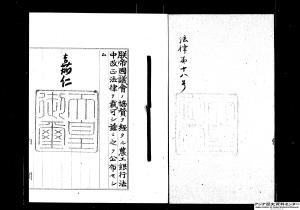 法律第十八号
朕帝國議會ノ協賛ヲ經タル農工銀行法
中改正法律ヲ裁可シ茲ニ之ヲ公布セシ
ム
嘉仁
天皇
御璽
アジア歴史資料センター